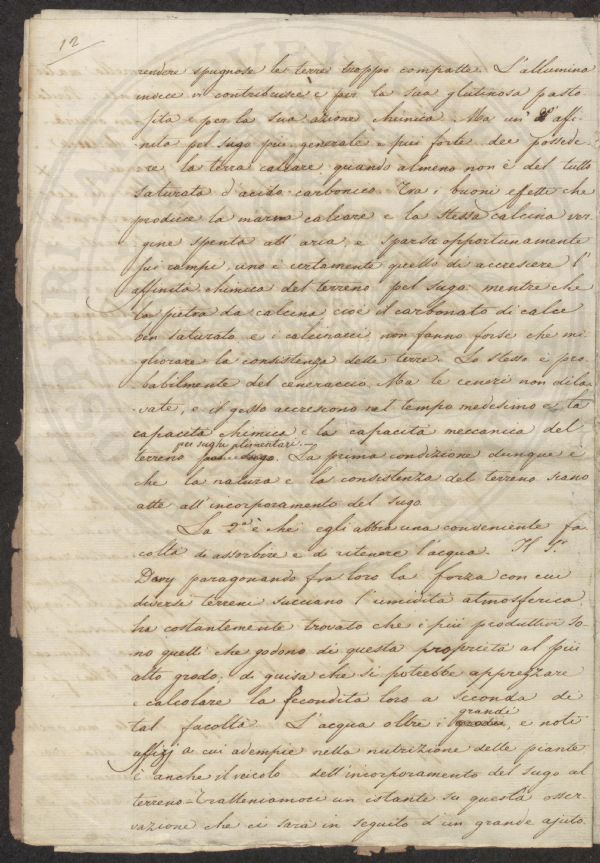 12
rendere spugnose le terre troppo compatte. L'allumina
invece vi contribuisce e per la sua glutinosa pasto
sità e per la sua azione chimica. Ma un' affi
nità pel sugo più generale e più forte dee possede
re la terra calcare quando almeno non è del tutto
saturata d'acido carbonico. Tra i buoni effetti che
produce la marna calcare e la stessa calcina ver
gine spenta all'aria, e sparsa opportunamente
pei campi, uno è certamente quello di accrescere l'
affinità chimica del terreno pel sugo: mentre che
la pietra da calcina cioè il carbonato di calce
ben saturato e i calcinacci non fanno forse che mi
gliorare la consistenza delle terre. Lo stesso è pro
babilmente del ceneraccio. Ma le ceneri non dila
vate, e il gesso accrescono nel tempo medesimo e la
capacità chimica e la capacità meccanica del
pei sughi alimentari.
terreno sugo. La prima condizione dunque è
che la natura e la consistenza del terreno siano
atte all'incorporamento del sugo.
La 2ª è che egli abbia una conveniente fa
coltà di assorbire e di ritenere l'acqua. Il Sr.
Davy paragonando fra loro la forza con cui
diversi terreni succiano l'umidità atmosferica
ha costantemente trovato che i più produttivi so
no quelli che godono di questa proprietà al più
alto grado; di guisa che si potrebbe apprezzare
e calcolare la fecondità loro a seconda di
grandi
tal facoltà. L'acqua oltre i, e noti
uffizj a cui adempie nella nutrizione delle piante
è anche il veicolo dell'incorporamento del sugo al
terreno. Tratteniamoci un istante su questa osser
vazione che ci sarà in seguito d'un grande ajuto.